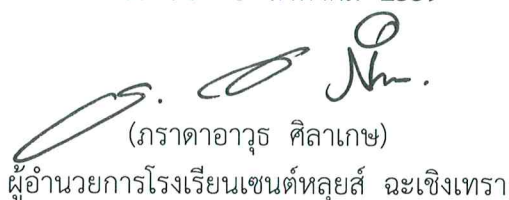 (ภราดาอาวุธ ศิลาเกษ)
ผู้อำนวยการโรงเรียนเซนต์หลุยส์ ฉะเชิงเทรา